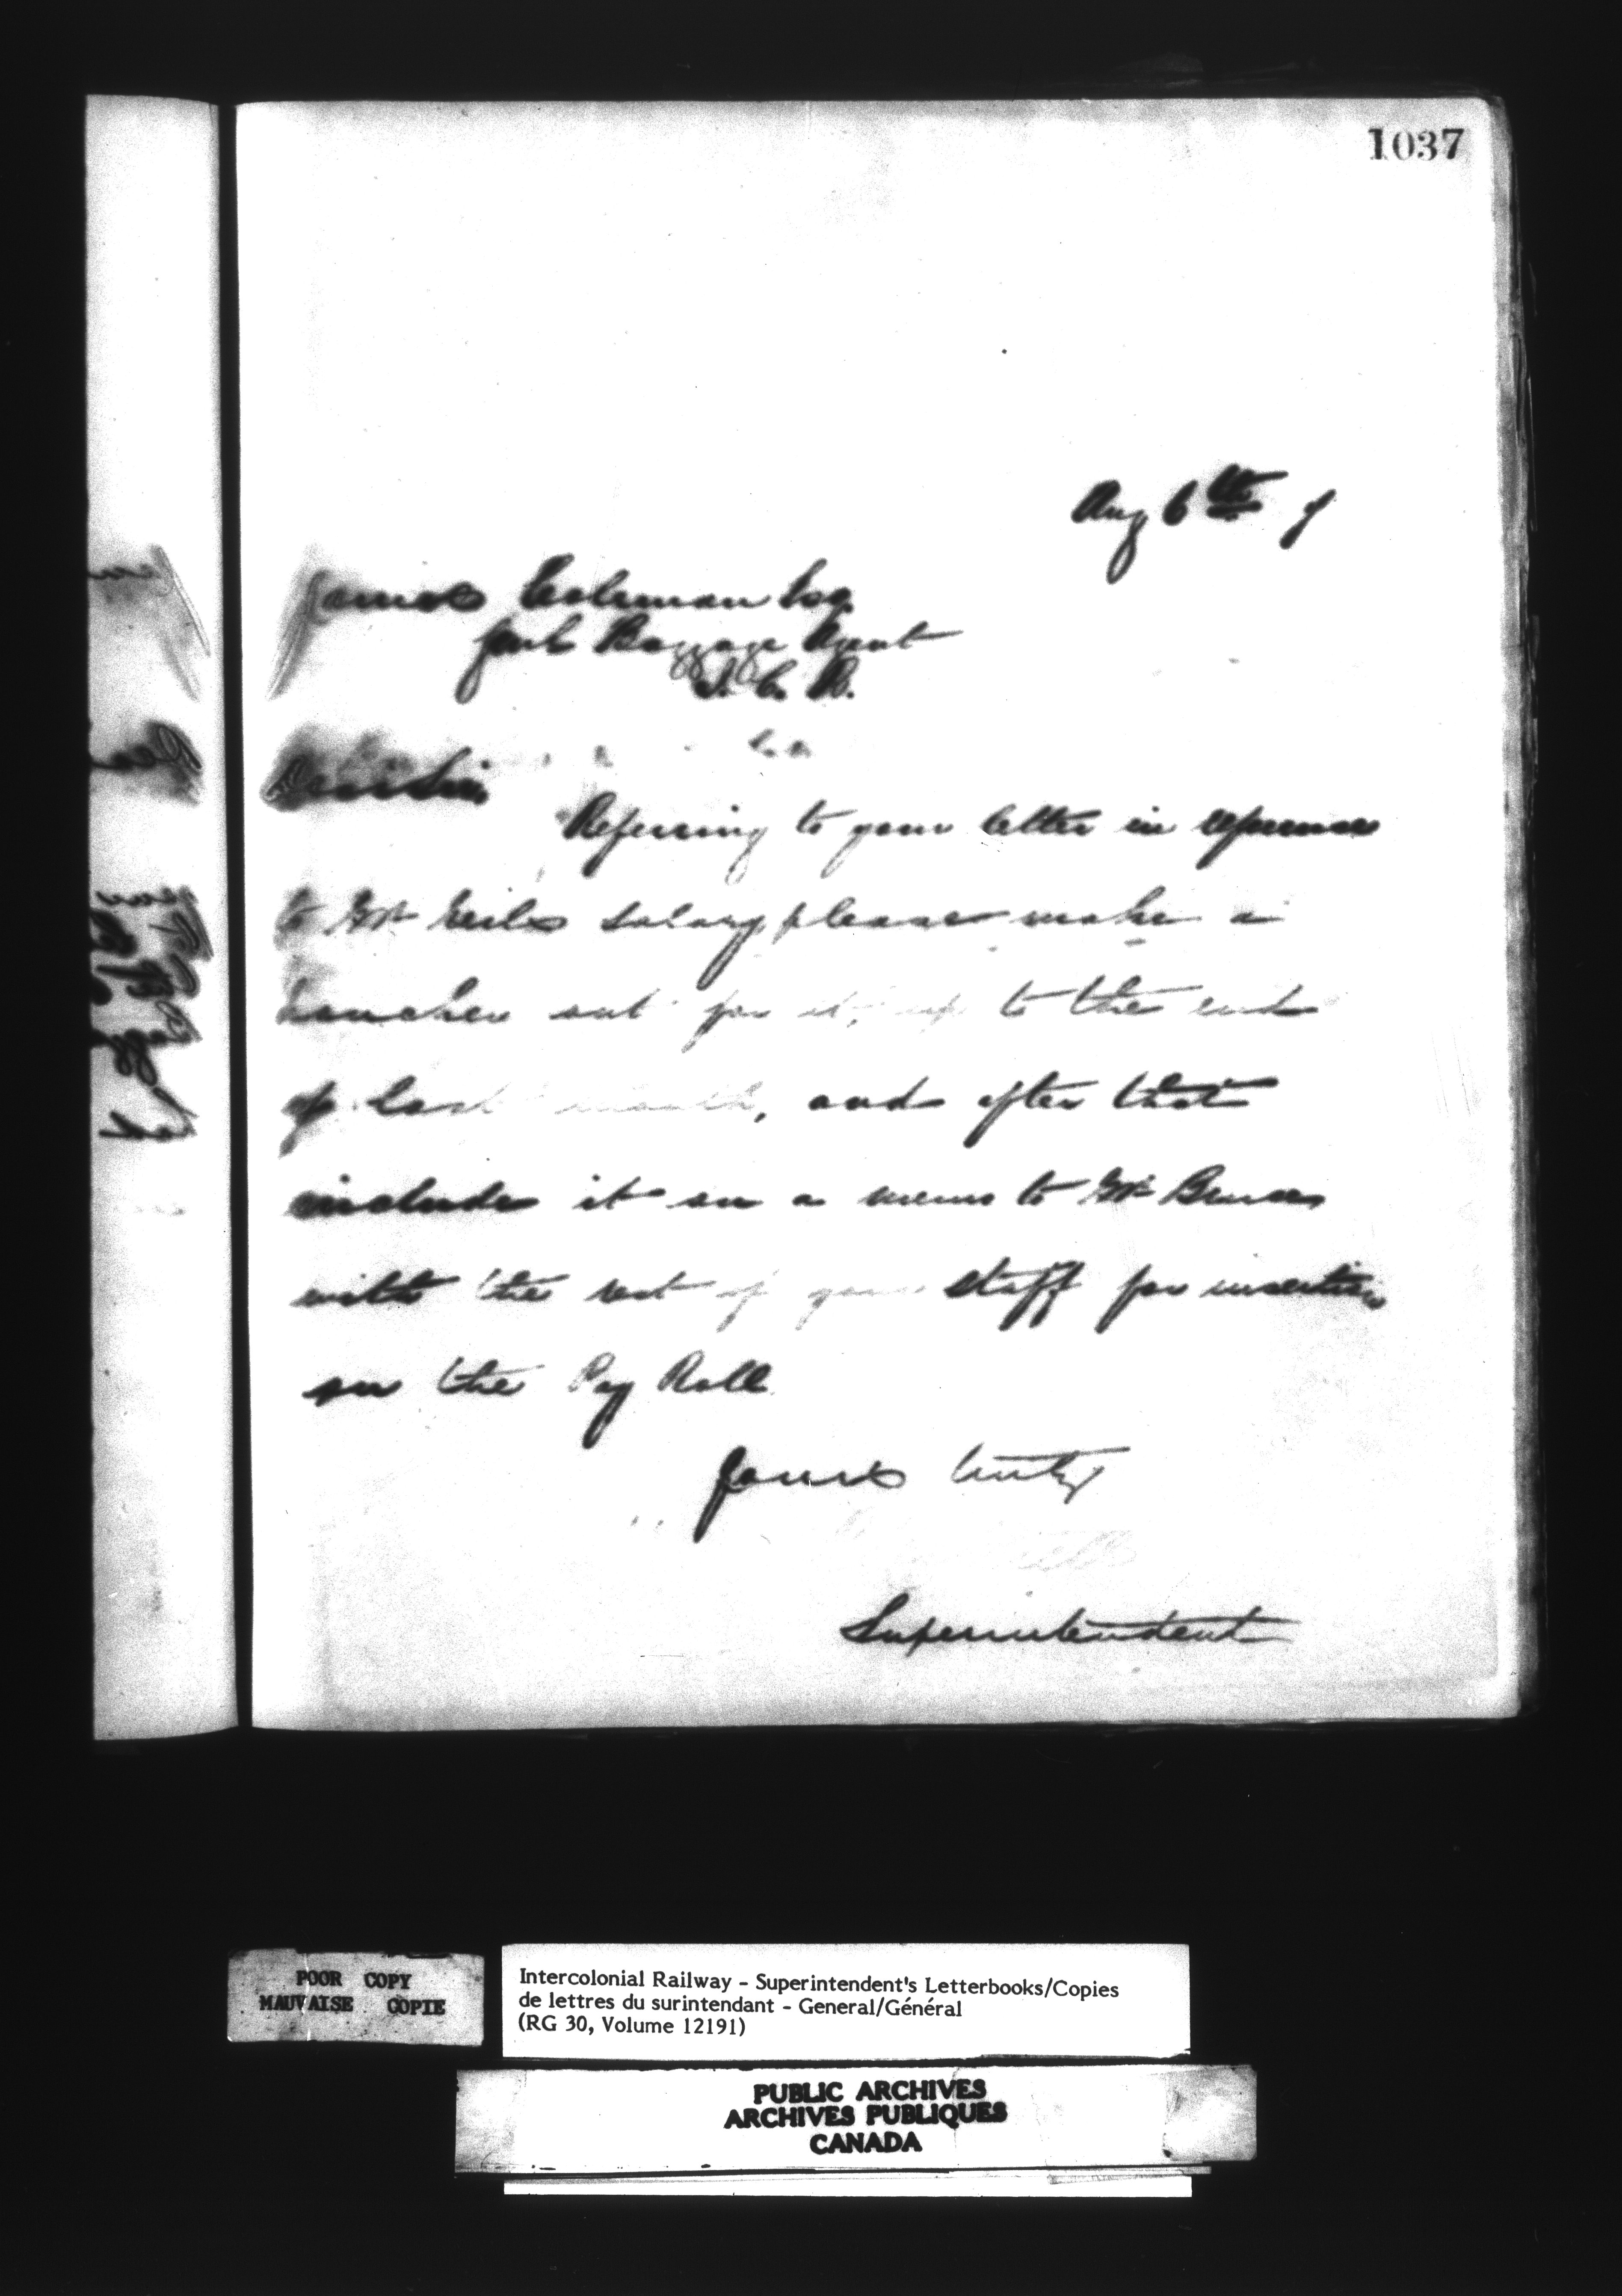 1037
Aug 6th
James Coleman Esq.
Genl Baggage Agent
I. C. R.
Dear Sir,
Referring to your letter in reference
to Mr salary, please make a
voucher out for it, up to the end
of last month, and after that
include it on a memo to Mr
with the rest of your staff for insertion
on the Pay Roll
Yours truly
Superintendent
POOR COPY
MAUVAISE COPIE
Intercolonial Railway - Superintendent's Letterbooks/Copies
de lettres du surintendant - General/Général
(RG 30, Volume 12191)
PUBLIC ARCHIVES
ARCHIVES PUBLIQUES
CANADA